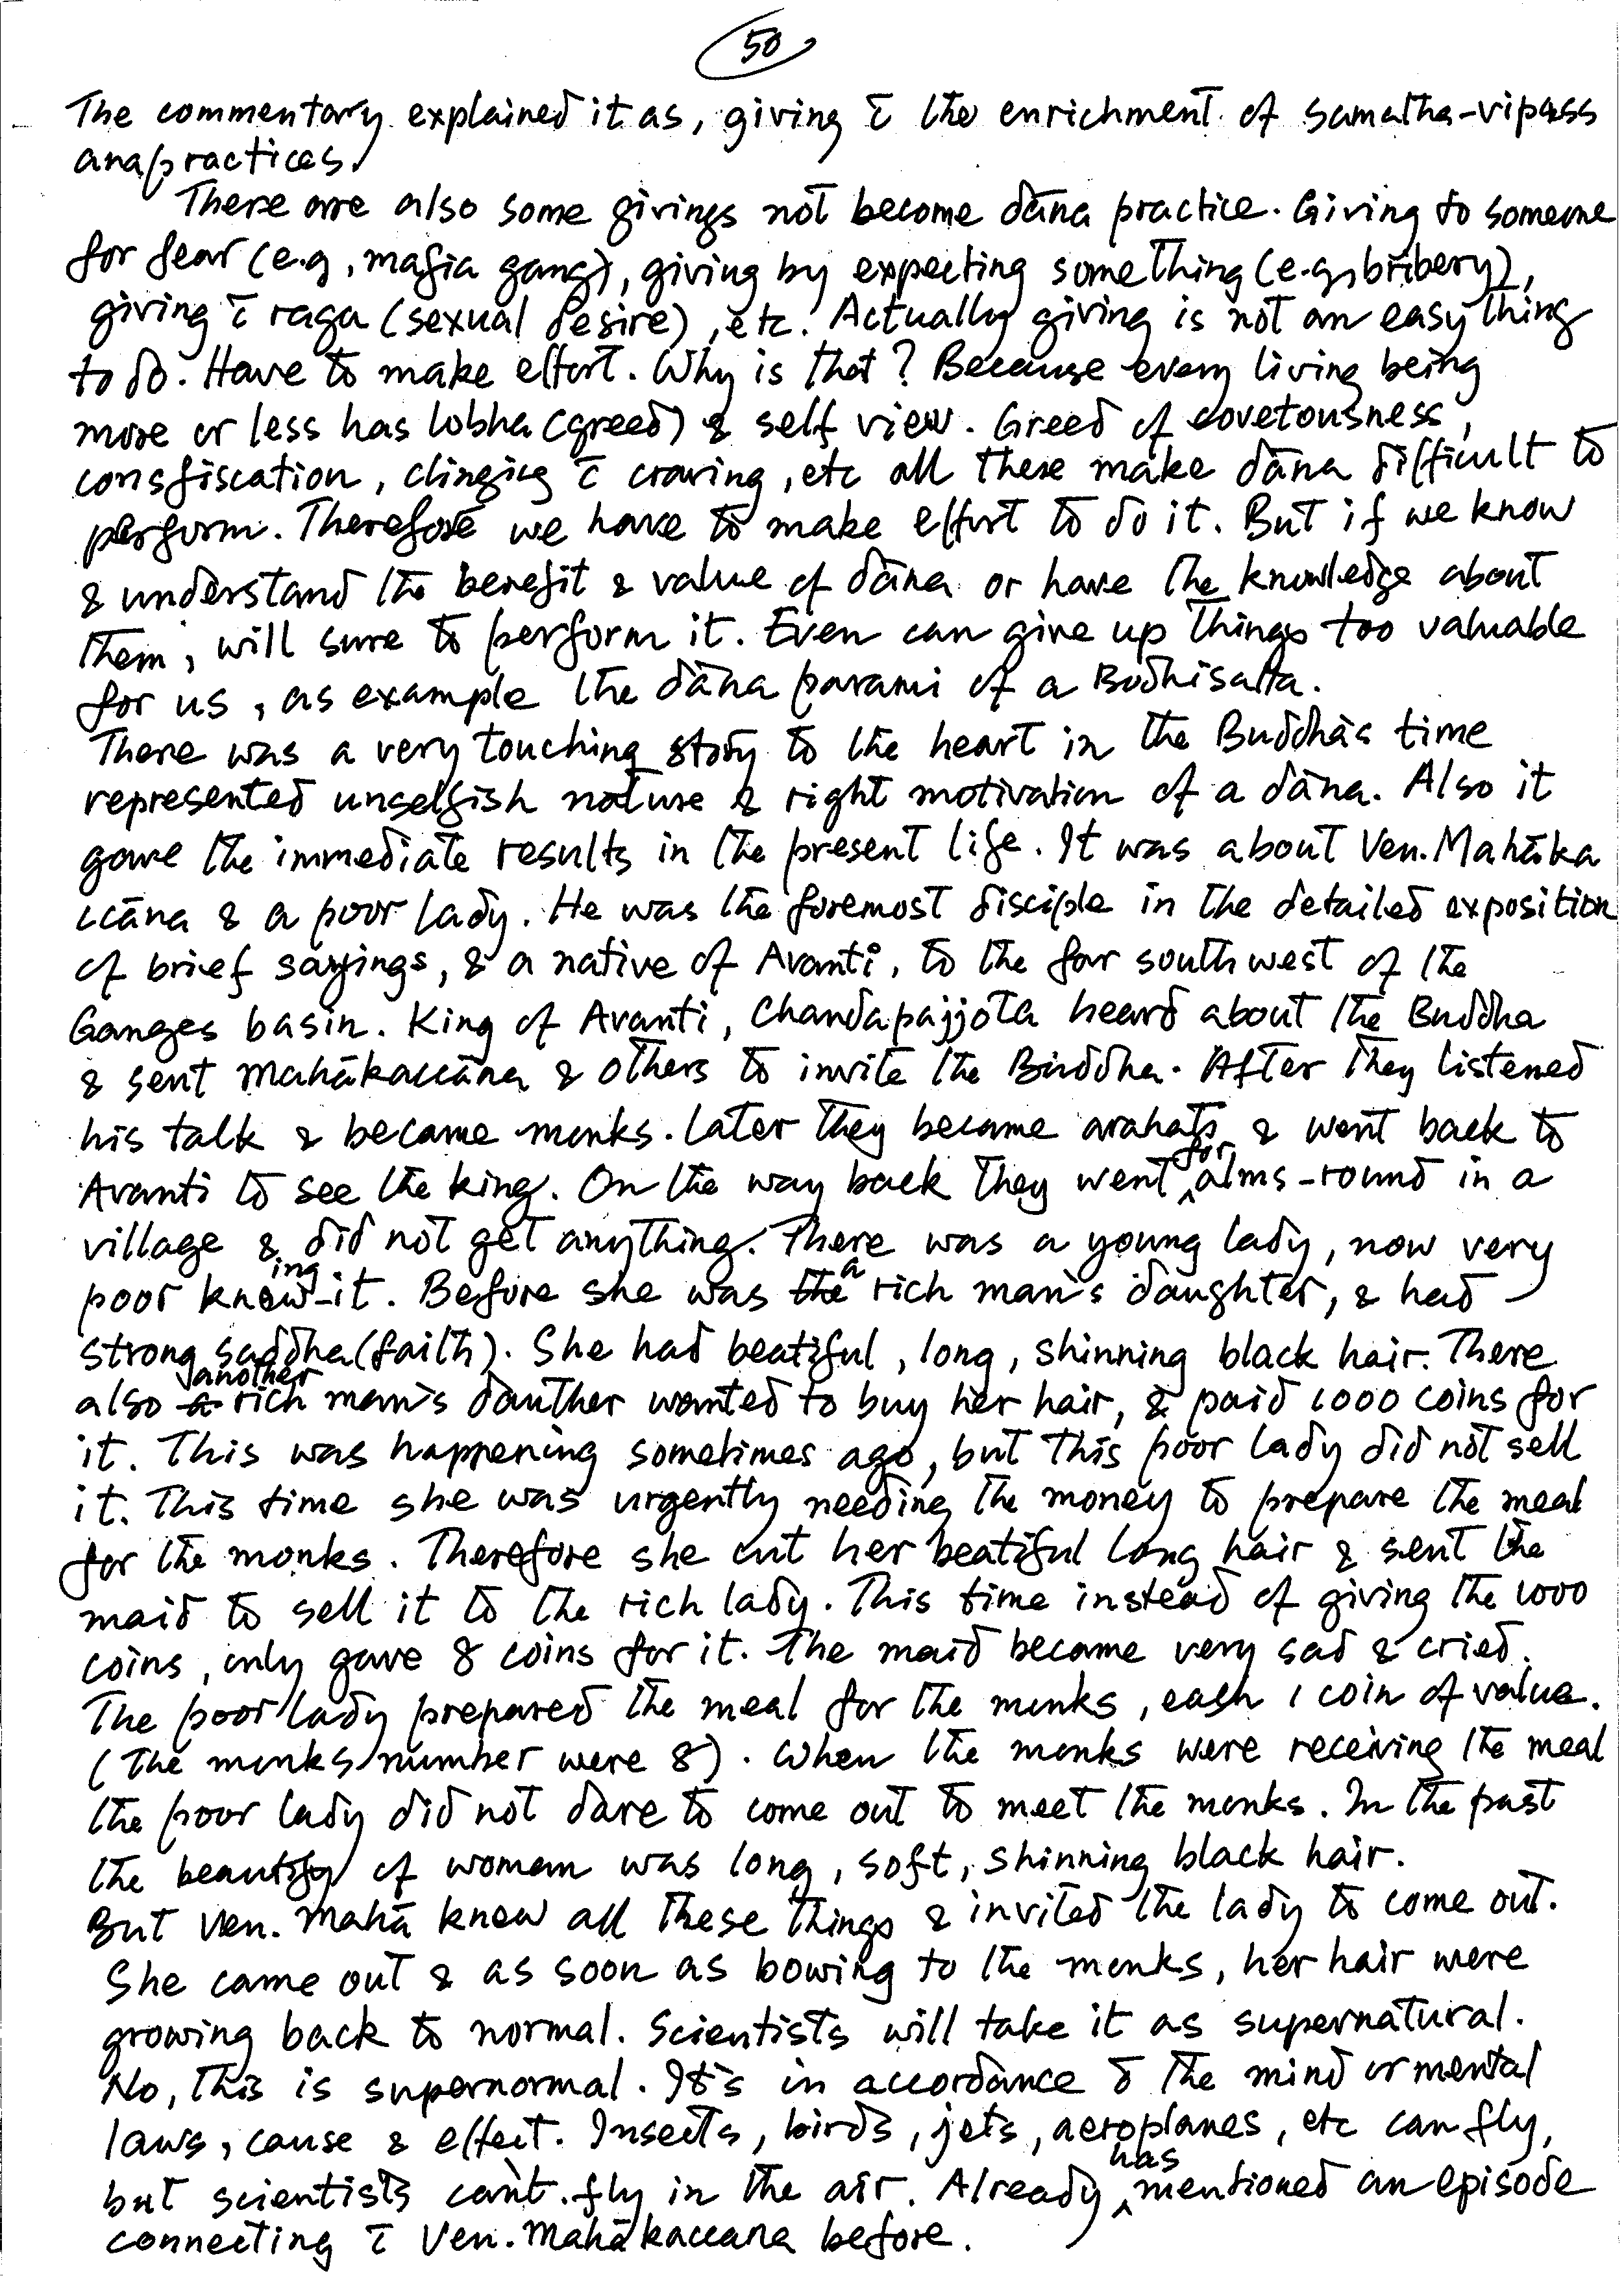 50
The commentary explained it as, giving c̄ the enrichment of samatha-vipass
ana practices.
There are also some givings not become dāna practice. Giving to someone
for fear (e.g, mafia gang), giving by expecting something (e.g, bribery),
giving c̄ raga (sexual desire), etc. Actually giving is not an easy thing
to do. Have to make effort. Why is that? Because every living being
more or less has lobha (greed) & self view. Greed of covetousness,
consfiscation, clinging c̄ craving, etc all these make dāna difficult to
perform. Therefore we have to make effort to do it. But if we know
& understand the benefit & value of dāna or have the knowledge about
them, will sure to perform it. Even can give up things too valuable
for us, as example the dāna parami of a Bodhisatta.
There was a very touching story to the heart in the Buddha's time
represented unselfish nature & right motivation of a dāna. Also it
gave the immediate results in the present life. It was about Ven. Mahāka
ccāna & a poor lady. He was the foremost disciple in the detailed exposition
of brief sayings, & a native of Avanti, to the far southwest of the
Ganges basin. King of Avanti, Chandapajjota heard about the Buddha
& sent Mahākaccāna & others to invite the Buddha. After they listened
his talk & became monks. Later they became arahats & went back to
Avanti to see the king. On the way back they went for alms-round in a
village & did not get anything. There was a young lady, now very
poor knowing it. Before she was a rich man's daughter, & had
strong saddha (faith). She had beatiful, long, shinning black hair. There
also another rich man's dauther wanted to buy her hair, & paid 1000 coins for
it. This was happening sometimes ago, but this poor lady did not sell
it. This time she was urgently needing the money to prepare the meal
for the monks. Therefore she cut her beatiful long hair & sent the
maid to sell it to the rich lady. This time instead of giving the 1000
coins, only gave 8 coins for it. The maid became very sad & cried.
The poor lady prepared the meal for the monks, each 1 coin of value.
(The monks number were 8). When the monks were receiving the meal
the poor lady did not dare to come out to meet the monks. In the past
the beautify of woman was long, soft, shinning black hair.
But Ven. Mahā knew all these things & invited the lady to come out.
She came out & as soon as bowing to the monks, her hair were
growing back to normal. Scientists will take it as supernatural.
No, this is supernormal. It's in accordance to the mind or mental
laws, cause & effect. Insects, birds, jets, aeroplanes, etc can fly,
but scientists can't fly in the air. Already has mentioned an episode
connecting c̄ Ven. Mahākaccana before.